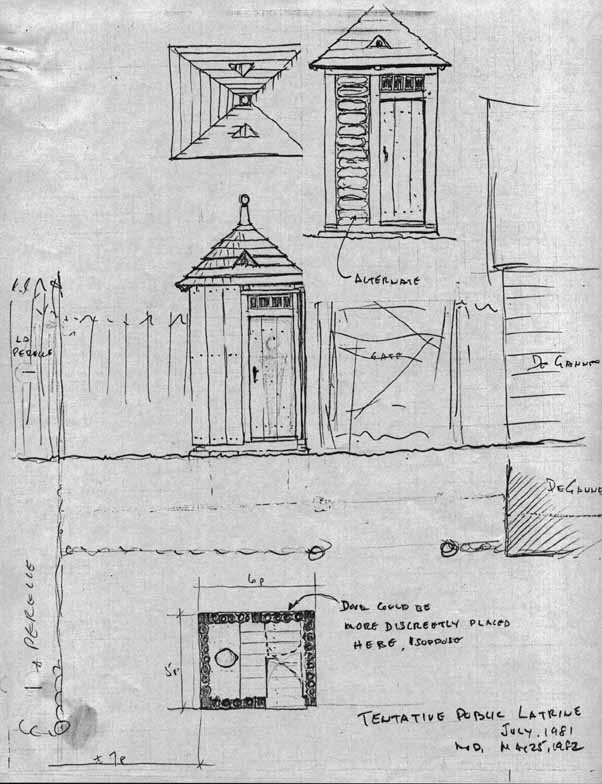 ALTERNATE
LA
PERELLE
GATE
DE GANNES
DE GANNE
6p
DOOR COULD BE
MORE DISCREETLY PLACED
HERE, I SUPPOSE
5p
LA PERELLE
± 7p
TENTATIVE PUBLIC LATRINE
JULY, 1981
MOD, MAY 25, 1982